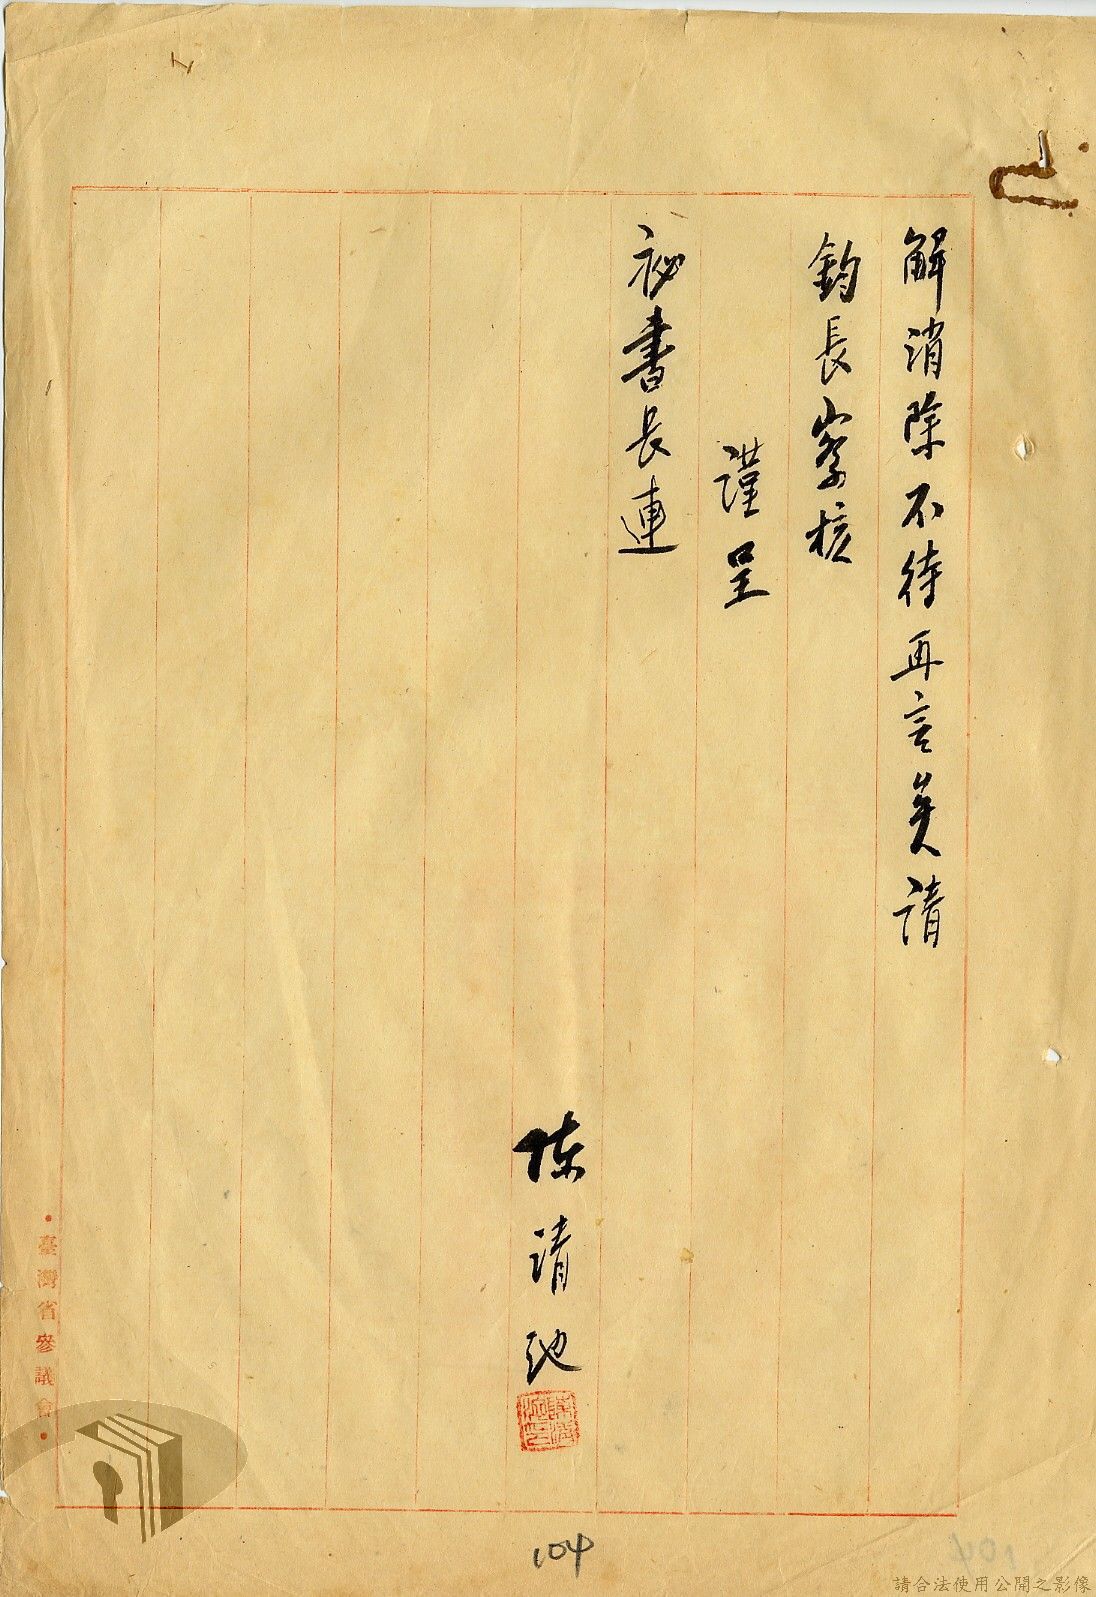 解消除不待再言矣請
鈞長察核
謹呈
秘書長連
陳清池
陳清池印
•臺灣省參議會•
104
請合法使用公開之影像